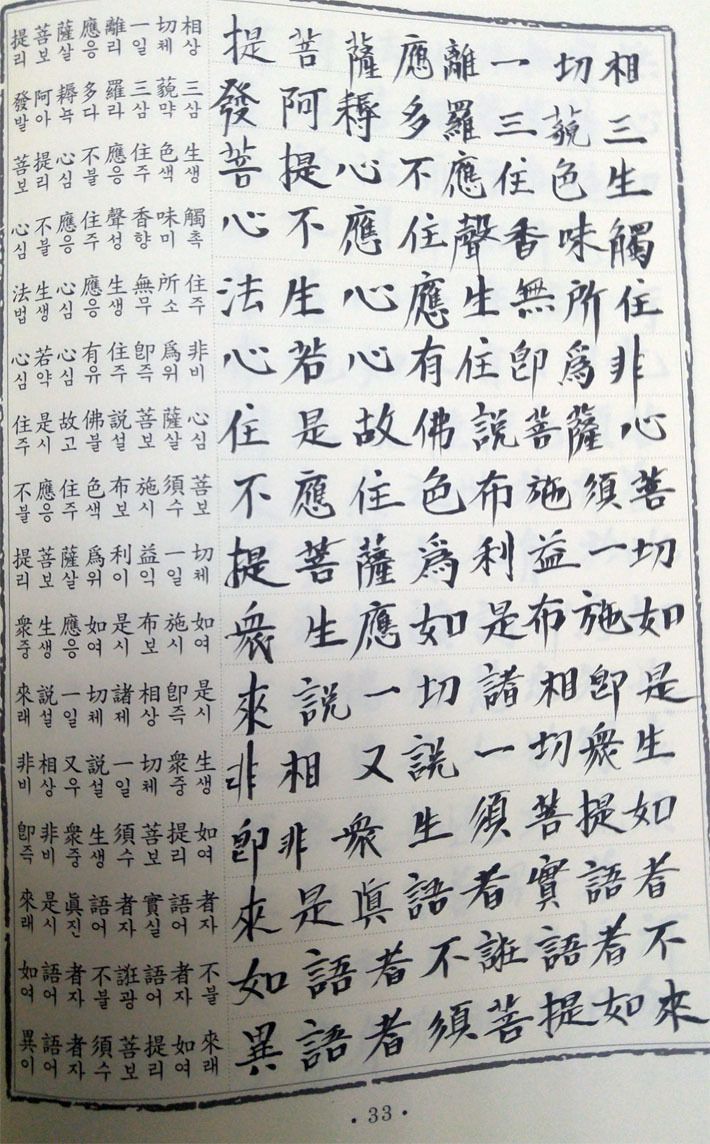 提菩薩應離一切相
리보살응리일체상
發阿耨多羅三藐三
발아뇩다라삼먁삼
菩提心不應住色生
보리심불응주색생
心不應住聲香味觸
심불응주성향미촉
法生心應生無所住
법생심응생무소주
心若心有住卽爲非
심약심유주즉위비
住是故佛說菩薩心
주시고불설보살심
不應住色布施須菩
불응주색보시수보
提菩薩爲利益一切
리보살위이익일체
衆生應如是布施如
중생응여시보시여
來說一切諸相卽是
래설일체제상즉시
非相又說一切衆生
비상우설일체중생
卽非衆生須菩提如
즉비중생수보리여
來是眞語者實語者
래시진어자실어자
如語者不誑語者不
여어자불광어자불
異語者須菩提如來
이어자수보리여래
提菩薩應離一切相
發阿耨多羅三藐三
菩提心不應住色生
心不應住聲香味觸
法生心應生無所住
心若心有住卽爲非
住是故佛說菩薩心
不應住色布施須菩
提菩薩爲利益一切
衆生應如是布施如
來說一切諸相卽是
非相又說一切衆生
卽非衆生須菩提如
來是眞語者實語者
如語者不誑語者不
異語者須菩提如來
· 33 ·